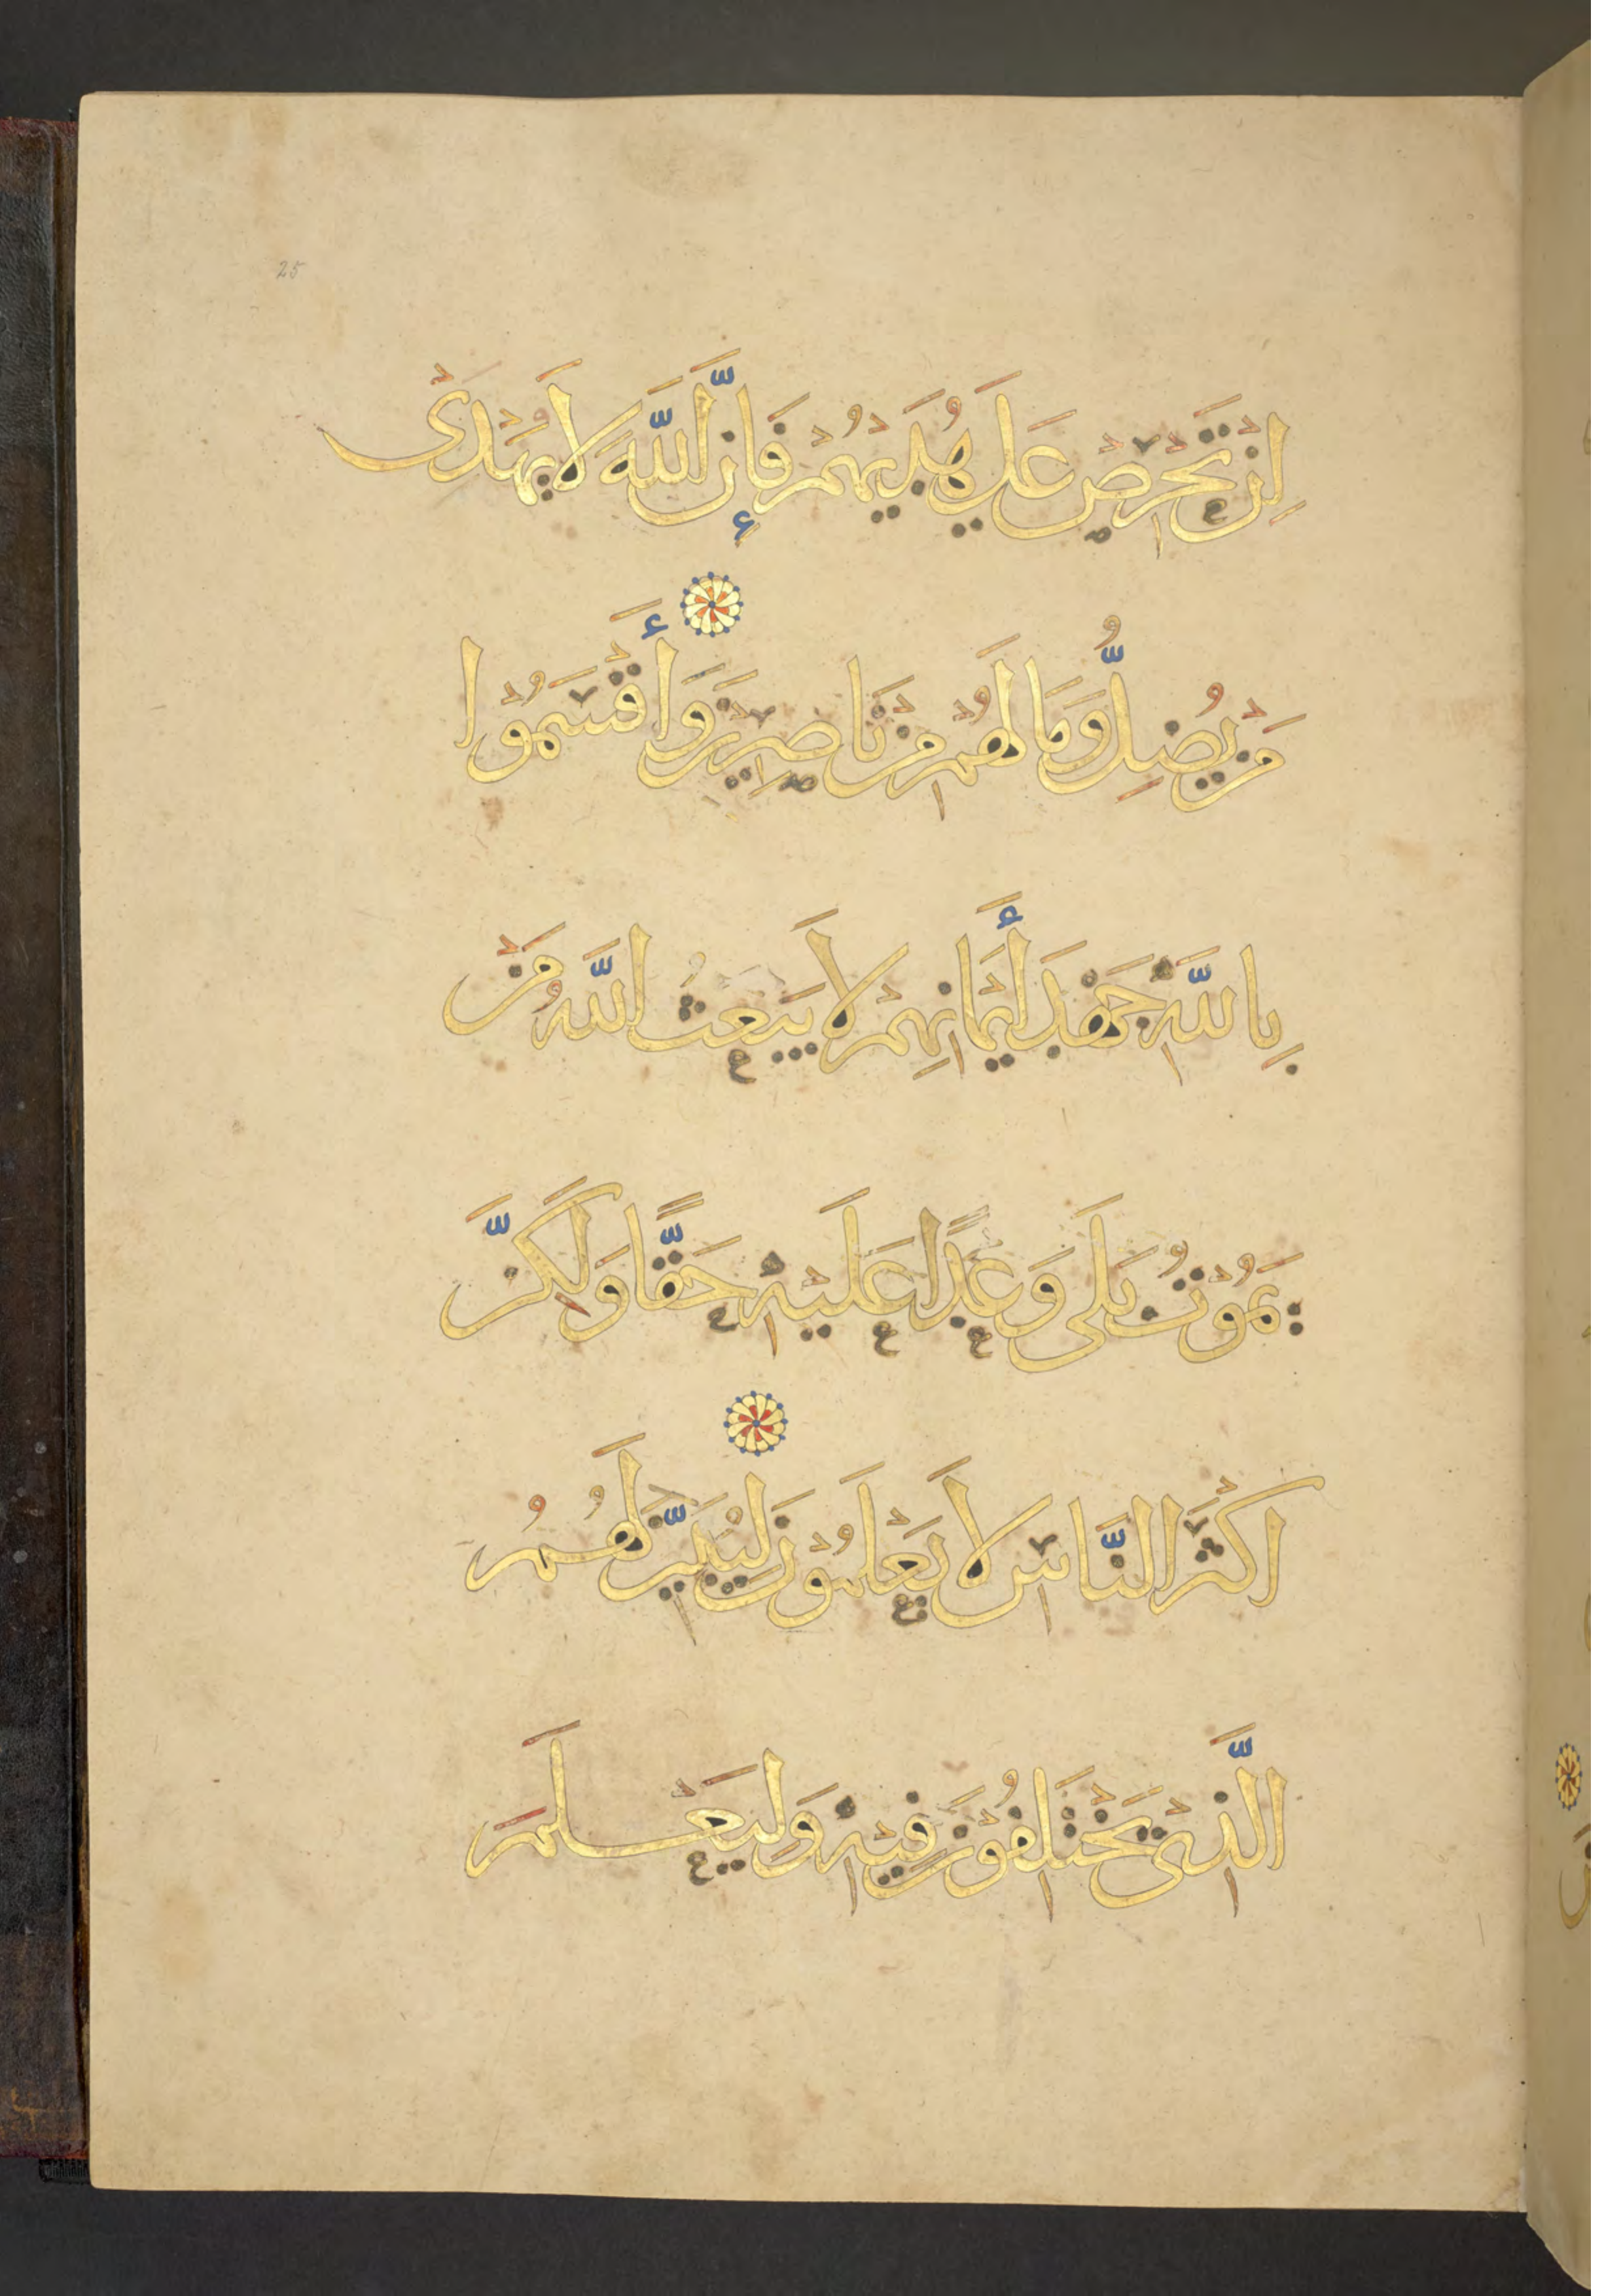 25
اِن تَحْرِصْ عَلَى هُدَيهُمْ فَإِنَّ اللَّهَ لَا يَهْدِى
مَنْ يُضِلُّ وَمَا لَهُمْ مِنْ نَاصِرِينَ وَأَقْسَمُوا
بِاللَّهِ جَهْدَ أَيْمَانِهِمْ لَا يَبْعَثُ اللَّهُ مَنْ
يَمُوتُ بَلَى وَعْدًا عَلَيْهِ حَقًّا وَلَكِنَّ
اَكْثَرَ النَّاسِ لَا يَعْلَمُونَ لِيُبَيِّنَ لَهُمُ
الَّذِى يَخْتَلِفُونَ فِيهِ وَلِيَعْلَمَ